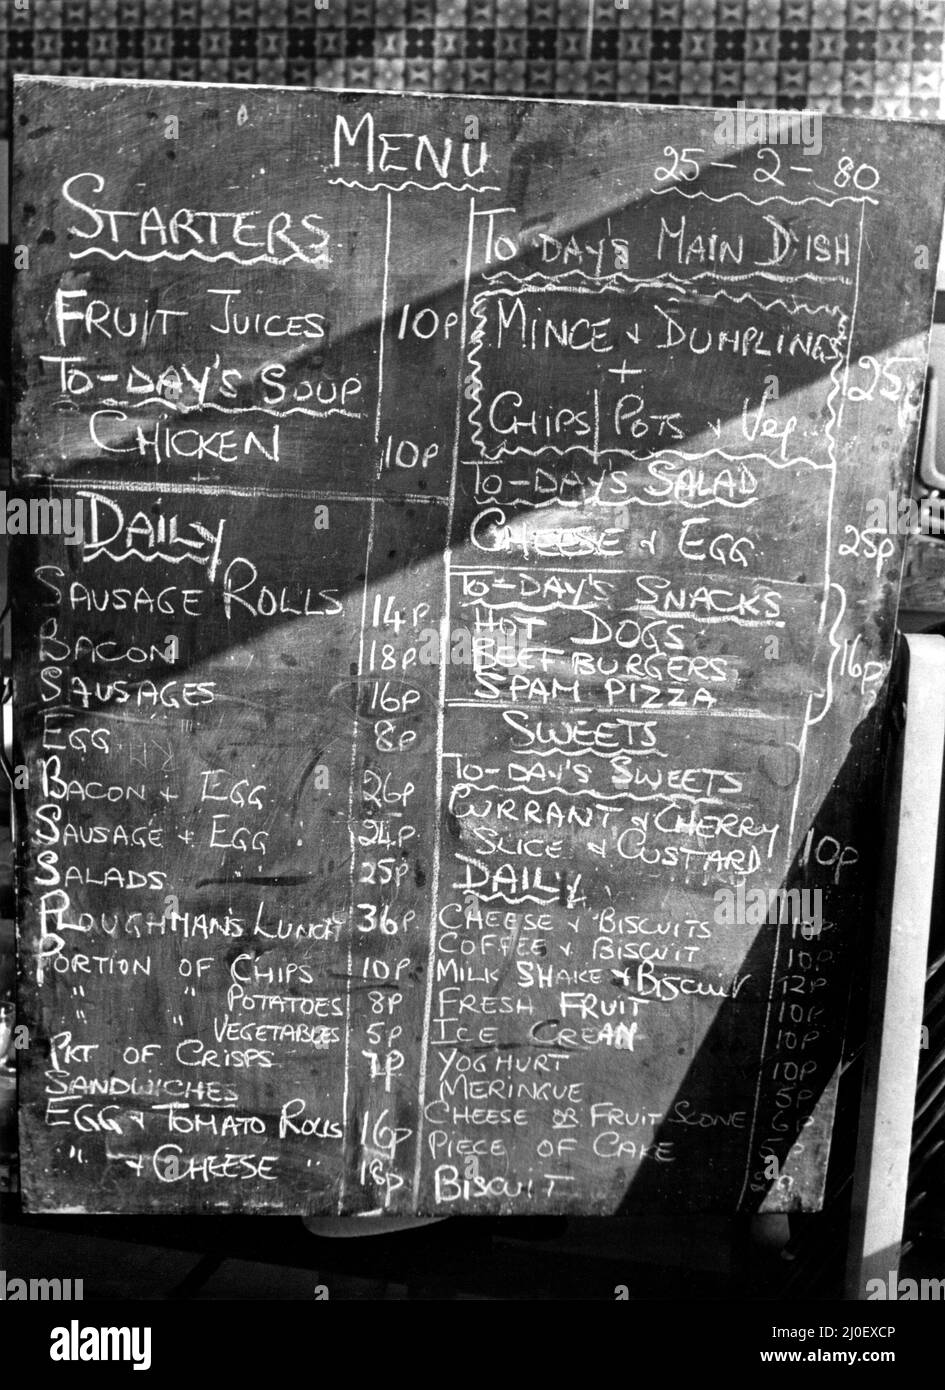 MENU
25-2-80
STARTERS
FRUIT JUICES 10P
TO-DAY'S SOUP
CHICKEN 10P
DAILY
SAUSAGE ROLLS 14P
BACON 18P
SAUSAGES 16P
EGG 8P
BACON + EGG 26P
SAUSAGE + EGG 24P
SALADS 25P
PLOUGHMAN'S LUNCH 36P
PORTION OF CHIPS 10P
" " POTATOES 8P
" " VEGETABLES 5P
PKT OF CRISPS 7P
SANDWICHES
EGG & TOMATO ROLLS 16P
" & CHEESE " 18P
TO DAY'S MAIN DISH
MINCE & DUMPLINGS
+
CHIPS/POTS & Veg. 25P
TO-DAY'S SALAD
CHEESE & EGG 25P
TO-DAY'S SNACKS
HOT DOGS
BEEFBURGERS 16P
SPAM PIZZA
SWEETS
TO-DAY'S SWEETS
CURRANT & CHERRY
SLICE & CUSTARD 10P
DAILY
CHEESE & BISCUITS 10P
COFFEE & BISCUIT 10P
MILK SHAKE & BISCUIT 12P
FRESH FRUIT 10P
ICE CREAM 10P
YOGHURT 10P
MERINGUE 5P
CHEESE OR FRUIT SCONE 6P
PIECE OF CAKE
BISCUIT
alamy
Image ID: 2J0EXCP
www.alamy.com